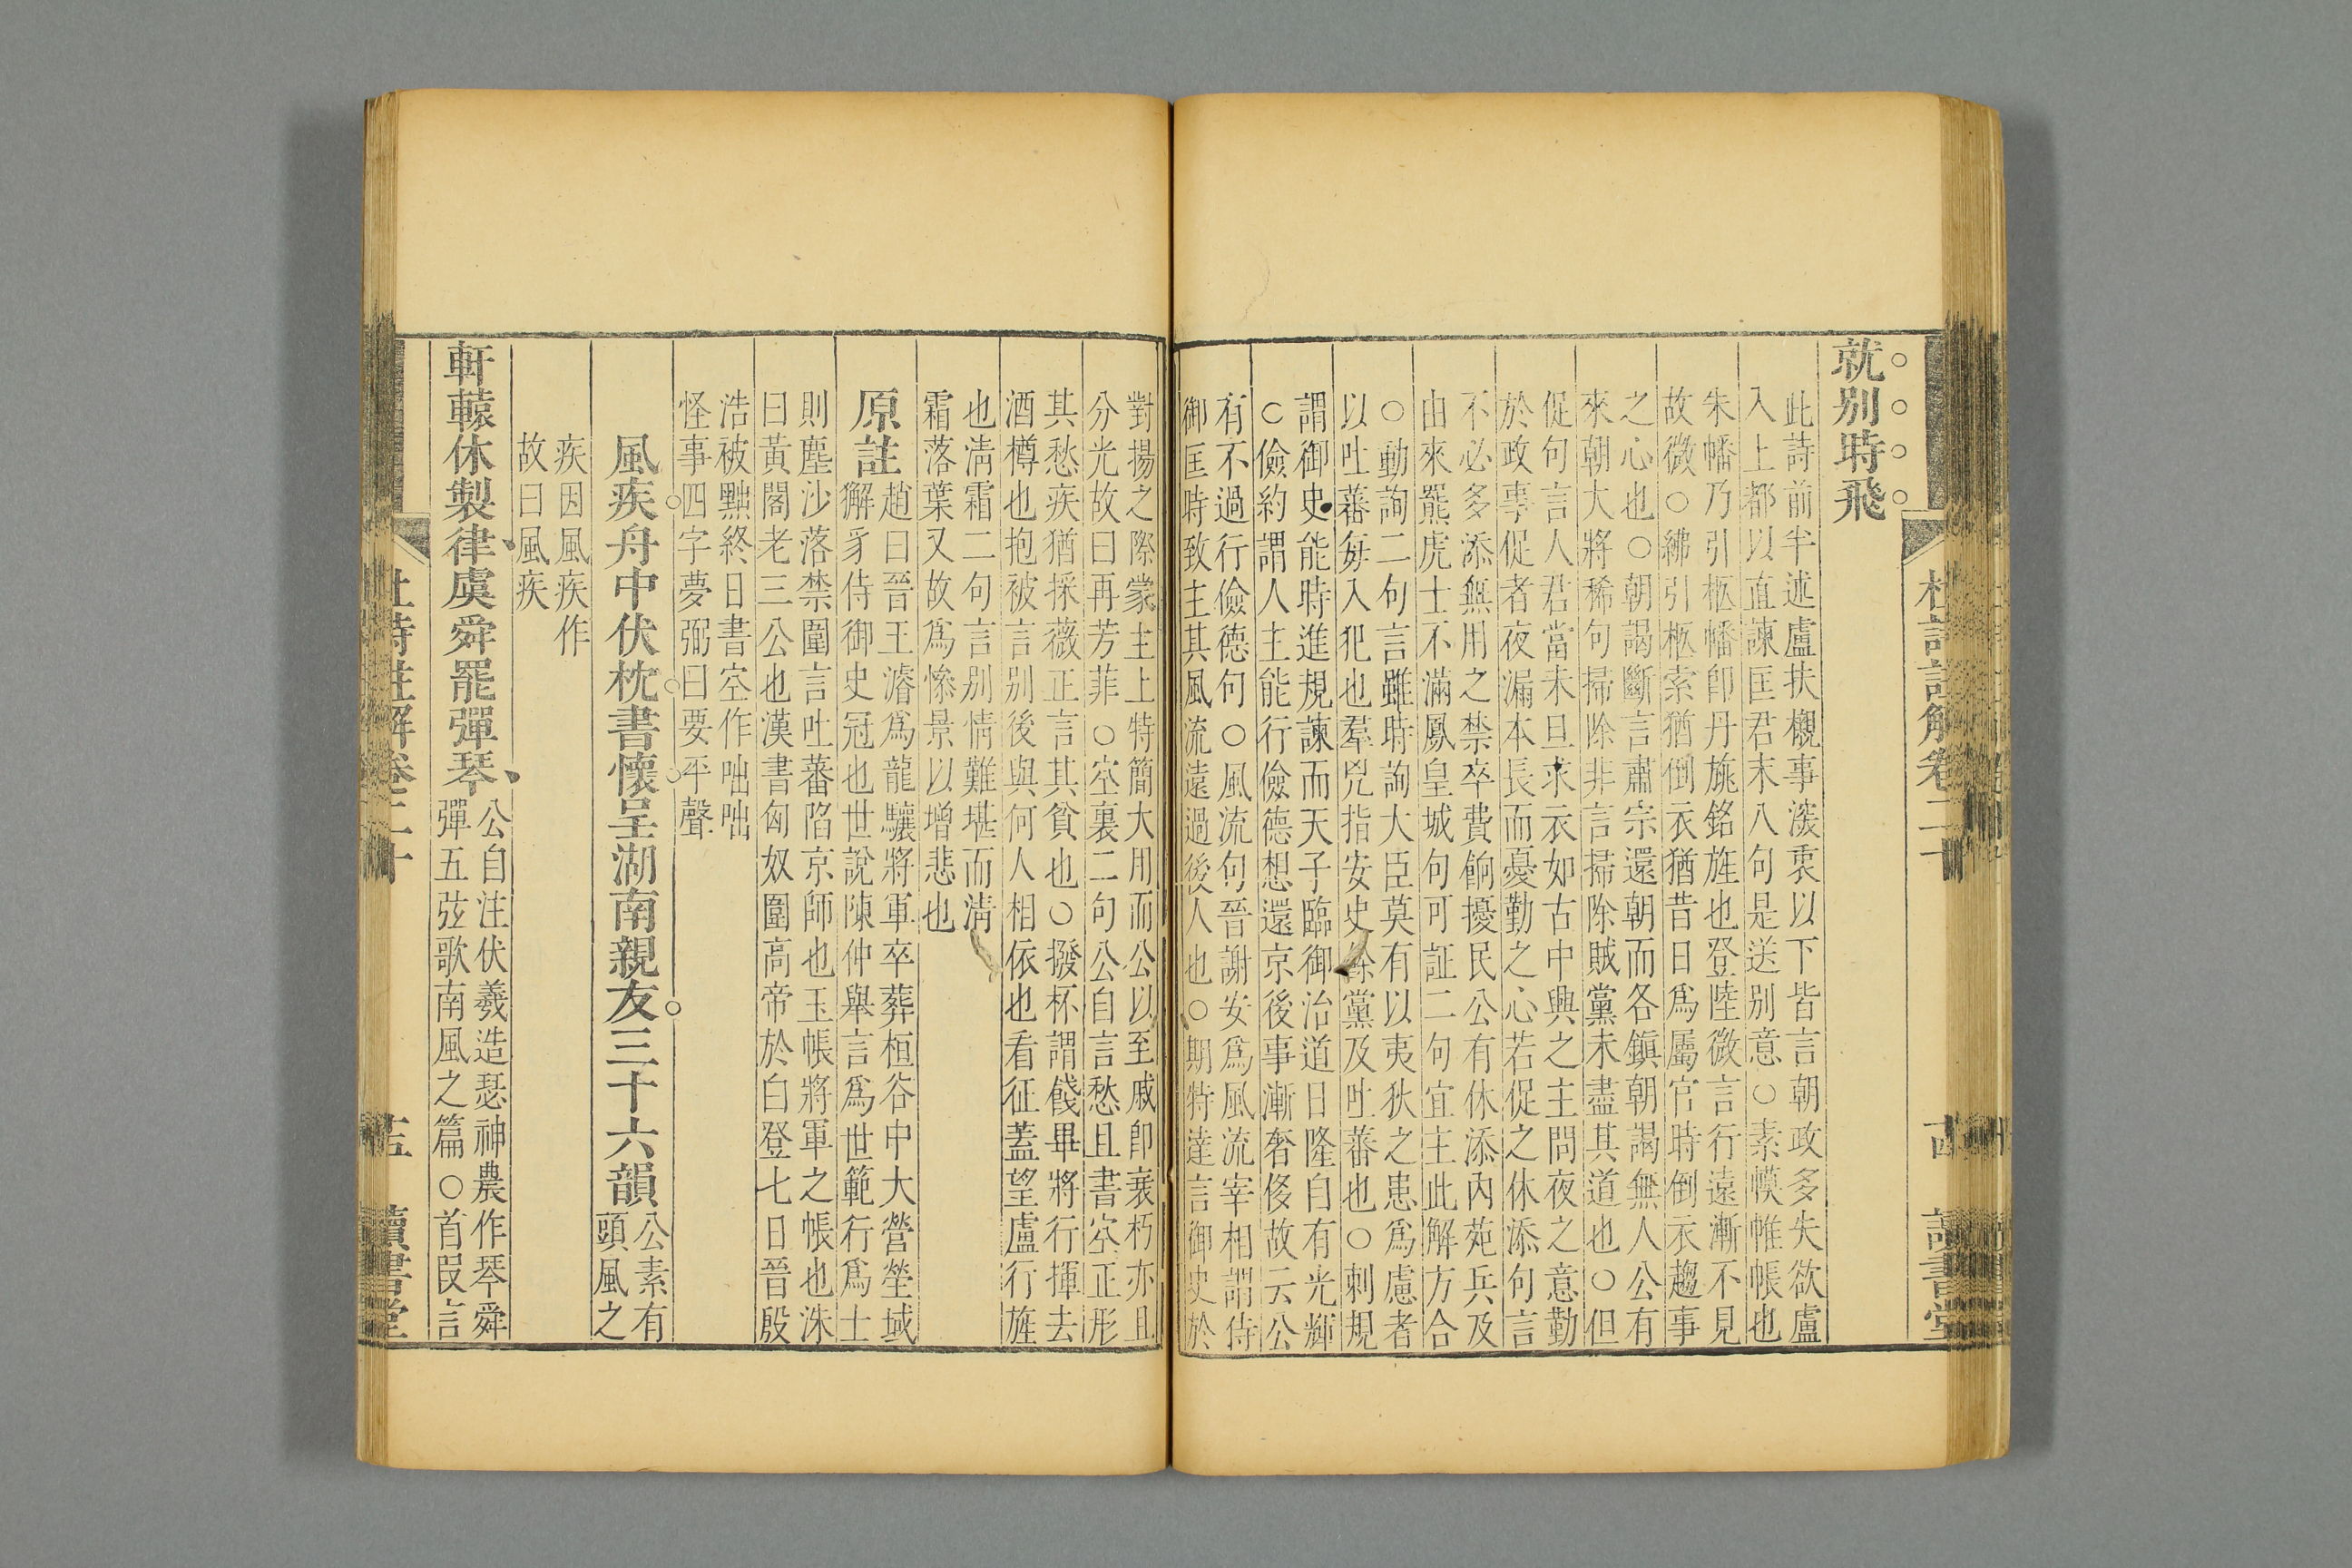 就別時飛
此詩前半述盧扶櫬事潑衷以下皆言朝政多失欲盧
入上都以直諫匡君末八句是送別意○素幙帷帳也
朱幡乃引柩幡卽丹旐銘旌也登陸微言行遠漸不見
故微○紼引柩索猶倒衣猶昔日爲屬官時倒衣趨事
之心也○朝謁斷言肅宗還朝而各鎭朝謁無人公有
來朝大將稀句掃除非言掃除賊黨未盡其道也○但
促句言人君當未旦求衣如古中興之主問夜之意勤
於政事促者夜漏本長而憂勤之心若促之休添句言
不必多添無用之禁卒費餉擾民公有休添內苑兵及
由來羆虎士不滿鳳皇城句可証二句宜主此解方合
○動詢二句言雖時詢大臣莫有以夷狄之患爲慮者
以吐蕃每入犯也羣兇指安史餘黨及吐蕃也○刺規
謂御史能時進規諫而天子臨御治道日隆自有光輝
○儉約謂人主能行儉德想還京後事漸奢侈故云公
有不過行儉德句○風流句晉謝安爲風流宰相謂侍
御匡時致主其風流遠過後人也○期特達言御史於
對揚之際蒙主上特簡大用而公以至戚卽衰朽亦且
分光故曰再芳菲○空裏二句公自言愁且書空正形
其愁疾猶採薇正言其貧也○撥杯謂餞畢將行揮去
酒樽也抱被言別後與何人相依也看征蓋望盧行旌
也淸霜二句言別情難堪而淸
霜落葉又故爲慘景以增悲也
原註
趙曰晉王濬爲龍驤將軍卒葬桓谷中大營塋域
獬豸侍御史冠也世說陳仲舉言爲世範行爲士
則塵沙落禁圍言吐蕃陷京師也玉帳將軍之帳也洙
曰黃閣老三公也漢書匈奴圍高帝於白登七日晉殷
浩被黜終日書空作咄咄
怪事四字夢弼曰要平聲
風疾舟中伏枕書懷呈湖南親友三十六韻
公素有
頭風之
疾因風疾作
故曰風疾
軒轅休製律虞舜罷彈琴
公自注伏羲造瑟神農作琴舜
彈五弦歌南風之篇○首叚言